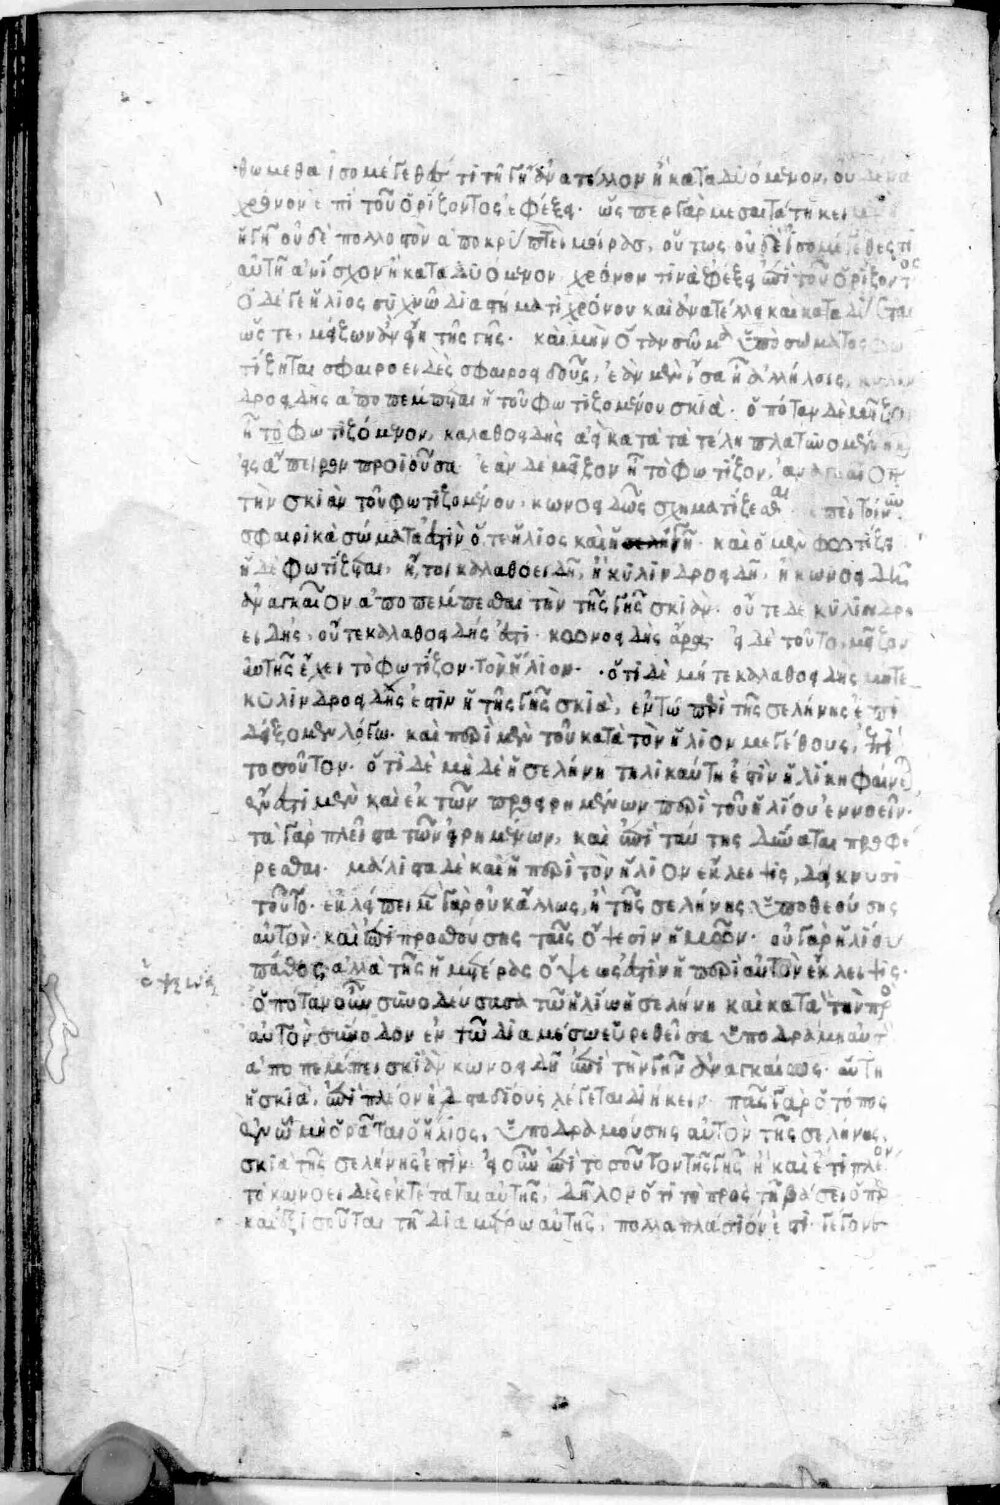 θώμεθα ἰσομέγεθές τι τῇ γῇ ἀνατέλλον ἢ καταδυόμενον, οὐδένα
χρόνον ἐπὶ τοῦ ὁρίζοντος ἐφέξει. ὥσπερ γὰρ μεσαιτάτη κειμένη
ἡ γῆ οὐδὲ πολλοστὸν ἀποκρύπτει μοίρας, οὕτως οὐδὲ ἰσομέγεθές τι
αὐτῇ ἀνίσχον ἢ καταδυόμενον χρόνον τινὰ ἐφέξει ἐπὶ τοῦ ὁρίζοντος
ὁ δέ γε ἥλιος συχνῷ διαστήματι χρόνου καὶ ἀνατέλλει καὶ καταδύεται
ὥστε, μείζων ἂν εἴη τῆς γῆς. καὶ μὴν ὅταν σῶμα ὑπὸ σώματος φω
τίζηται σφαιροειδὲς σφαιροειδοῦς, ἐὰν μὲν ἴσα ᾖ ἀλλήλοις, κυλιν
δροειδὴς ἀποπέμπεται ἡ τοῦ φωτιζομένου σκιά. ὁπόταν δὲ μεῖζον
ᾖ τὸ φωτιζόμενον, καλαθοειδὴς ἀεὶ κατὰ τὰ τέλη πλατυνομένη καὶ
εἰς ἄπειρον προϊοῦσα. ἐὰν δὲ μεῖζον ᾖ τὸ φωτίζον,
τὴν σκιὰν τοῦ φωτιζομένου, κωνοειδῶς σχηματίζεσθαι. ἐπεὶ τοίνυν
σφαιρικὰ σώματά ἐστιν ὅ τε ἥλιος καὶ ἡ γῆ. καὶ ὁ μὲν φωτίζει
ἡ δὲ φωτίζεται, ἤτοι καλαθοειδῆ, ἢ κυλινδροειδῆ, ἢ κωνοειδῆ
ἀναγκαῖον ἀποπέμπεσθαι τὴν τῆς γῆς σκιάν. οὔτε δὲ κυλινδρο
ειδής, οὔτε καλαθοειδής ἐστι. κωνοειδὴς ἄρα. εἰ δὲ τοῦτο, μεῖζον
αὐτῆς ἔχει τὸ φωτίζον τὸν ἥλιον. ὅτι δὲ μήτε καλαθοειδὴς μήτε
κυλινδροειδής ἐστιν ἡ τῆς γῆς σκιά, ἐν τῷ περὶ τῆς σελήνης ἐπι
δείξομεν λόγῳ. καὶ περὶ μὲν τοῦ κατὰ τὸν ἥλιον μεγέθους, ἐπὶ
τοσοῦτον. ὅτι δὲ μηδὲ ἡ σελήνη τηλικαύτη ἐστὶν ἡλίκη φαίνεται
ἔνεστι μὲν καὶ ἐκ τῶν προειρημένων περὶ τοῦ ἡλίου ἐννοεῖν.
τὰ γὰρ πλεῖστα τῶν εἰρημένων, καὶ ἐπὶ ταύτης δύναται προφέ
ρεσθαι. μάλιστα δὲ καὶ ἡ περὶ τὸν ἥλιον ἔκλειψις, δείκνυσι
τοῦτο. ἐκλείπει μὲν γὰρ οὐκ ἄλλως, ἢ τῆς σελήνης ὑποθεούσης
αὐτὸν. καὶ ἐπιπροσθούσης ταῖς ὄψεσιν ἡμῶν. οὐ γὰρ ἡλίου
πάθος, ἀλλὰ τῆς ἡμετέρας ὄψεώς ἐστιν ἡ περὶ αὐτὸν ἔκλειψις.
ὁπόταν οὖν συνοδεύσασα τῷ ἡλίῳ ἡ σελήνη καὶ κατὰ τὴν πρὸς
αὐτὸν σύνοδον ἐν τῷ διὰ μέσων εὑρεθεῖσα ὑποδράμῃ αὐτὸν
ἀποπέμπει σκιὰν κωνοειδῆ ἐπὶ τὴν γῆν ἀναγκαίως. αὕτη
ἡ σκιά, ἐπὶ πλέον ἢ δ σταδίους λέγεται διήκειν. πᾶς γὰρ ὁ τόπος
ἐν ᾧ μὴ ὁρᾶται ὁ ἥλιος, ὑποδραμούσης αὐτὸν τῆς σελήνης,
σκιὰ τῆς σελήνης ἐστίν. εἰ οὖν ἐπὶ τοσοῦτον τῆς γῆς ἢ καὶ ἔτι πλέον
τὸ κωνοειδὲς ἐκτέταται αὐτῆς, δῆλον ὅτι τὸ πρὸς τῇ βάσει ὅπερ
καὶ ἐξισοῦται τῇ διαμέτρῳ αὐτῆς, πολλαπλάσιόν ἐστι. γέγονε